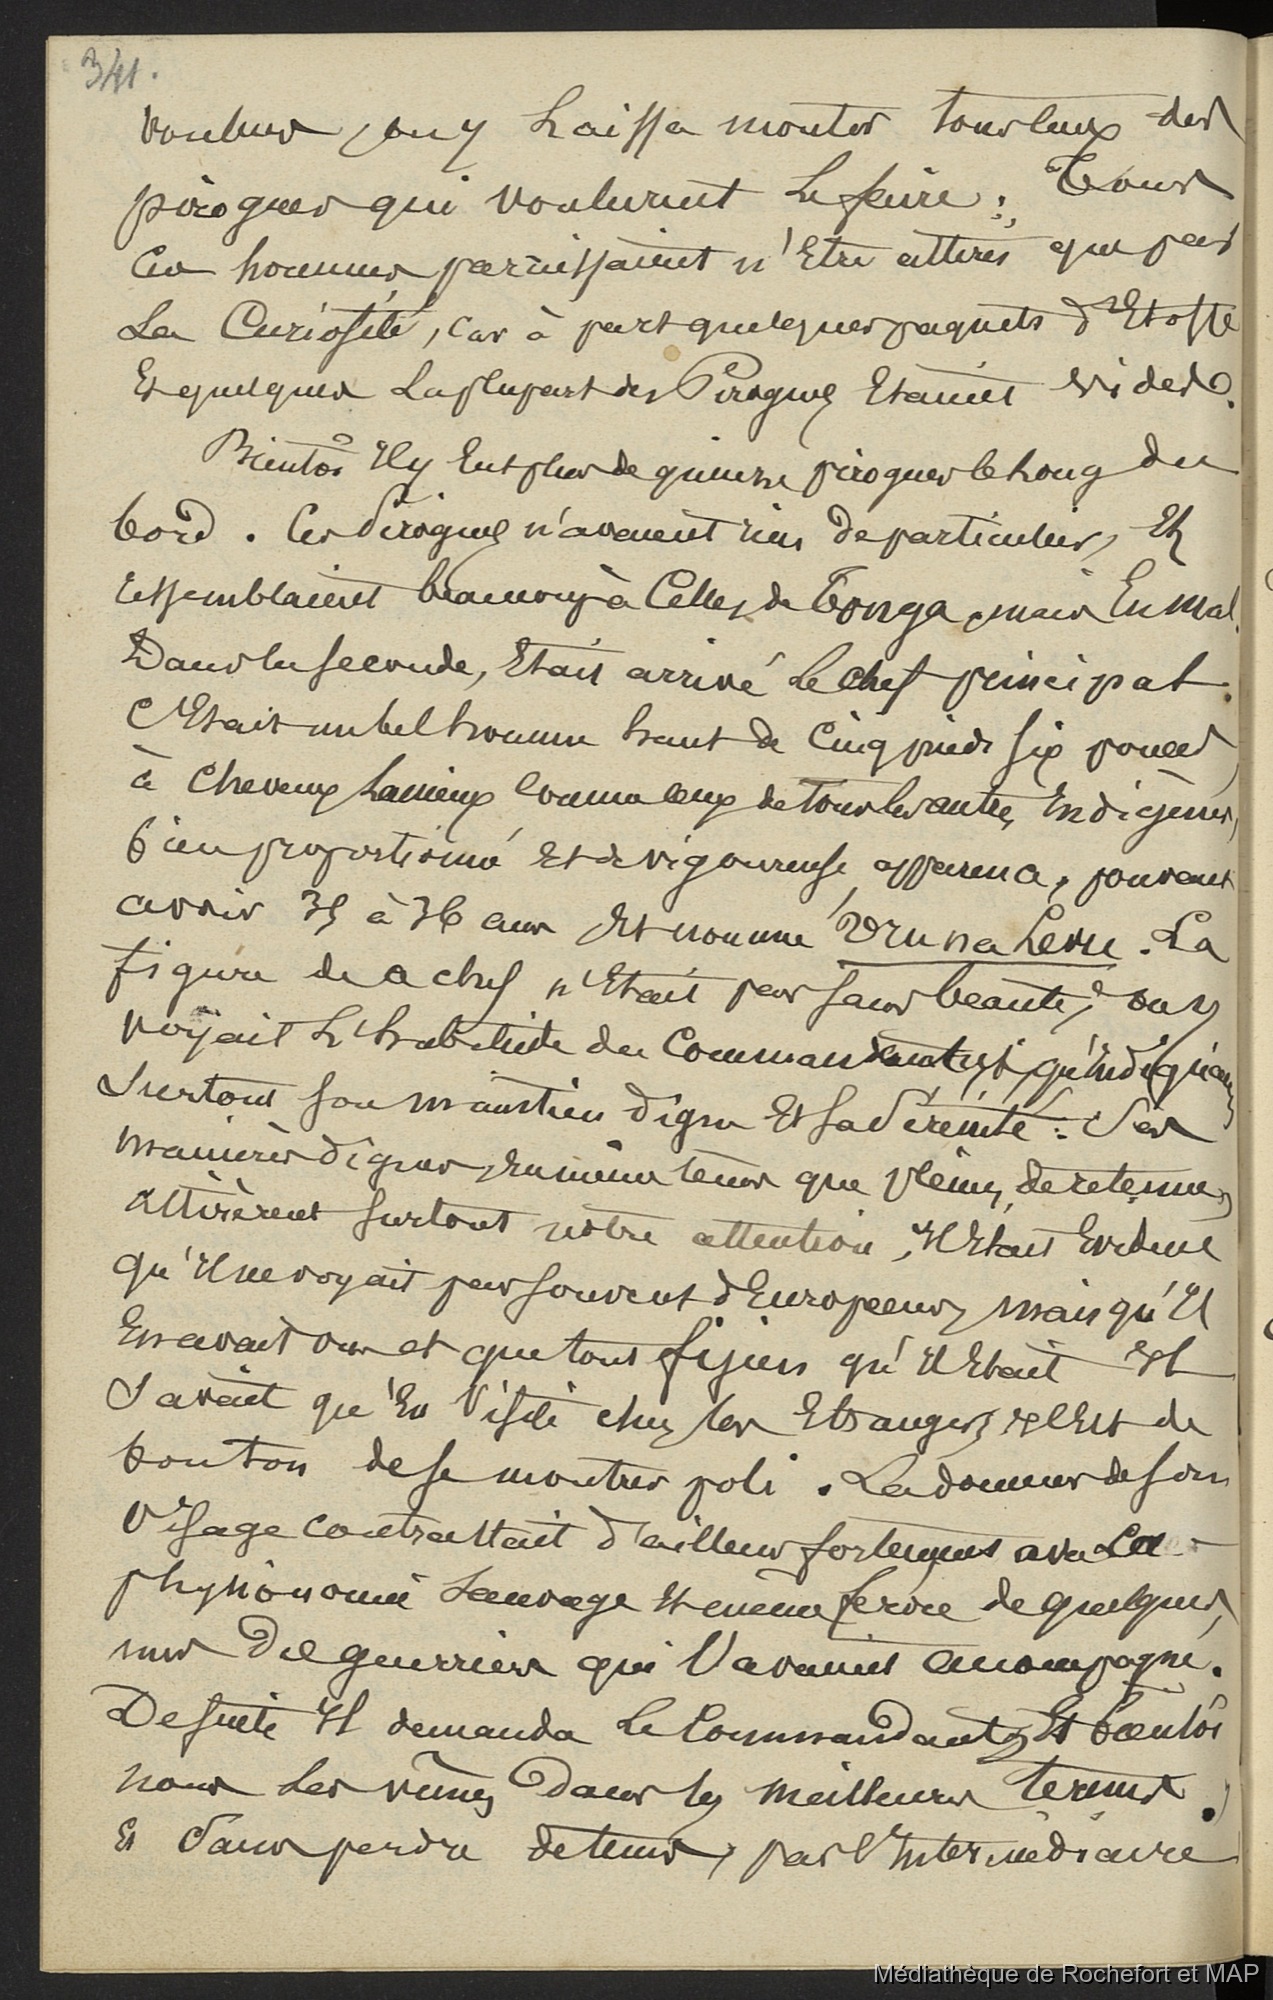 341.
voulus, on y Laissa monter tous ceux des
pirogues qui voulurent Le faire. Tous
Ces hommes paraissaient n'Etre attirés que par
La Curiosité, Car à part quelques paquets d'Etoffe
Et quelques La plupart des Pirogues Etaient vides.
Bientôt Il y Eut plus de quinze pirogues le Long du
bord. Ces Pirogues n'avaient rien de particulier, Et
ressemblaient beaucoup à Celles de Tonga, mais En mal.
Dans la seconde, Etait arrivé Le Chef principal.
C'Etait un bel homme haut de Cinq pieds six pouces
à Cheveux Laineux Comme ceux de tous les autres Indigènes,
bien proportionné Et de vigoureuse apparence, pouvant
avoir 35 à 36 ans Et nommé Vrunalevu. La
figure de ce chef n'Etait pas sans beauté, on y
voyait L'habitude du Commandement, qu'Indiquaient
Surtout son maintien digne Et sa Sérénité. Ses
manières dignes, En même tems que pleines de retenue,
attirèrent surtout notre attention, Il Etait Evident
qu'Il ne voyait pas souvent d'Européens, mais qu'Il
En avait vu et que tout fijien qu'Il Etait Il
Savait qu'En Visite chez les Etrangers Il Est de
bon ton de se montrer poli. La douceur de son
Visage contrastait d'ailleurs fortement avec La
physionomie Sauvage Et même féroce de quelques
uns des guerriers qui l'avaient accompagné.
De suite Il demanda Le Commandant, Et bientôt
nous Les vîmes dans les meilleurs termes.
Et Sans perdre de tems, par l'Intermédiaire
Médiathèque de Rochefort et MAP